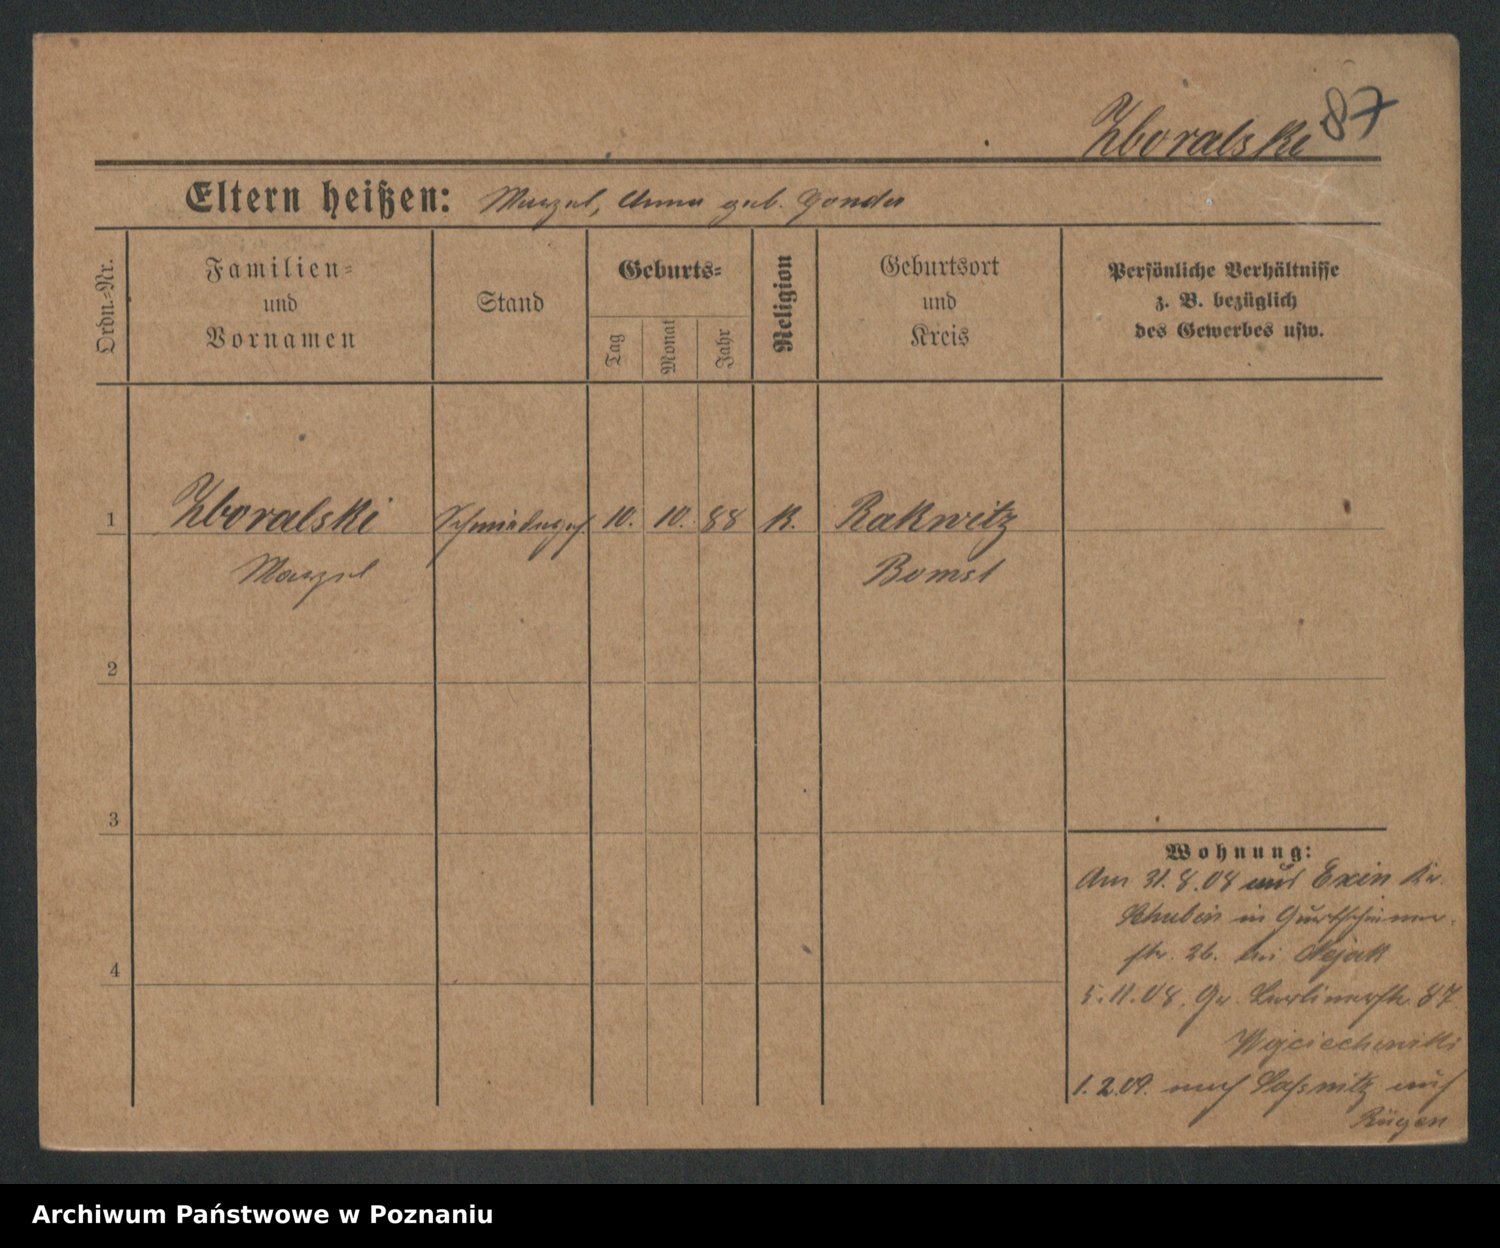 Zboralski 87
Eltern heißen: Marzel, Anna geb. Gonda
Ordn.-Nr.
Familien-
und
Vornamen
Stand
Geburts-
Tag
Monat
Jahr
Religion
Geburtsort
und
Kreis
Persönliche Verhältnisse
z. B. bezüglich
des Gewerbes usw.
1 Zboralski Schmiedeges. 10. 10. 88 K. Rakwitz
Marzel Bomst
2
3
4
Wohnung:
Am 31.8.08 aus Exin Kr.
Schubin in Gurtschiner-
str. 26. bei
5.11.08. Gr. Berlinerstr. 87
Wojciechowski
1.2.09. nach Saßnitz auf
Rügen
Archiwum Państwowe w Poznaniu